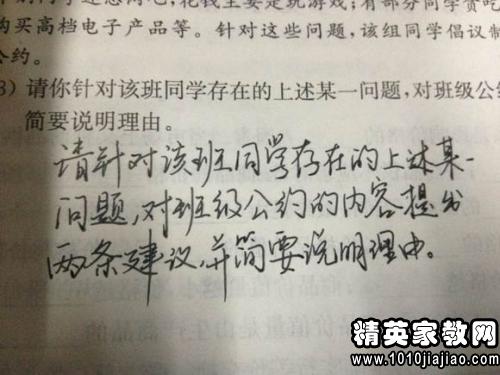 别同学迷恋网吧,花钱主要是玩游戏;有部分同学贪吃
购买高档电子产品等。针对这些问题,该组同学倡议制
公约。
3)请你针对该班同学存在的上述某一问题,对班级公约
简要说明理由。
请针对该班同学存在的上述某一
问题,对班级公约的内容提出
两条建议,并简要说明理由。
精英家教网
www.1010jiajiao.com